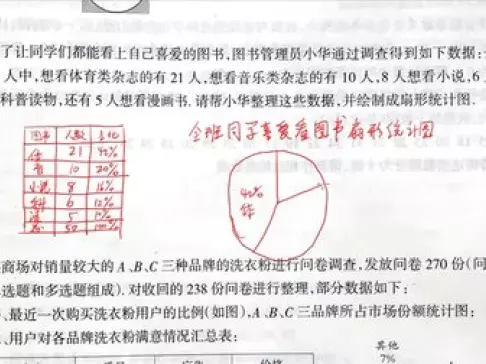 了让同学们都能看上自己喜爱的图书,图书管理员小华通过调查得到如下数据:
人中,想看体育类杂志的有 21 人,想看音乐类杂志的有 10 人,8 人想看小说,6
科普读物,还有 5 人想看漫画书. 请帮小华整理这些数据,并绘制成扇形统计图.
全班同学喜爱看图书扇形统计图
图书 人数 占比
体 21 42%
音 10 20%
小说 8 16%
科 6 12%
漫 5 10%
总 50 100%
42%
体
商场对销量较大的 A、B、C 三种品牌的洗衣粉进行问卷调查,发放问卷 270 份(问
选题和多选题组成). 对收回的 238 份问卷进行整理,部分数据如下:
、最近一次购买洗衣粉用户的比例(如图),A、B、C 三品牌所占市场份额统计图:
、用户对各品牌洗衣粉满意情况汇总表:
其他
7%